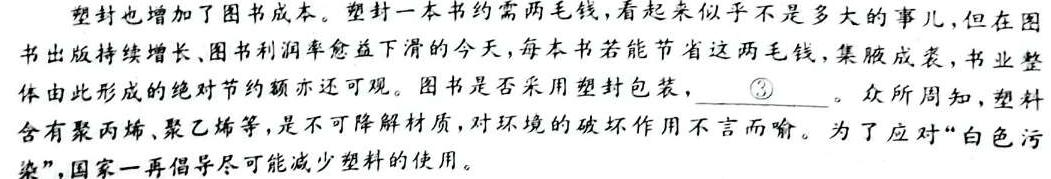 塑封也增加了图书成本。塑封一本书约需两毛钱,看起来似乎不是多大的事儿,但在图
书出版持续增长、图书利润率愈益下滑的今天,每本书若能节省这两毛钱,集腋成裘,书业整
体由此形成的绝对节约额亦还可观。图书是否采用塑封包装,____③____。众所周知,塑料
含有聚丙烯、聚乙烯等,是不可降解材质,对环境的破坏作用不言而喻。为了应对“白色污
染”,国家一再倡导尽可能减少塑料的使用。